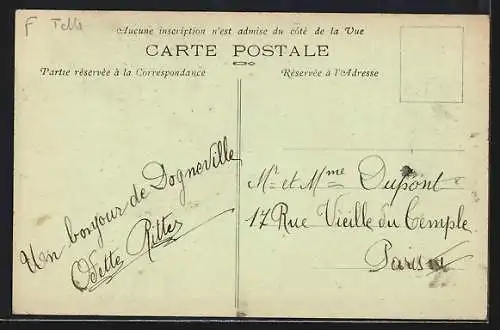 F Tells
Aucune inscription n'est admise du côté de la Vue
CARTE POSTALE
Partie réservée à la Correspondance
Réservée à l'Adresse
Un bonjour de Dogneville
Odette Ritter
Mr et Mme Dupont
17 Rue Vieille du Temple
Paris